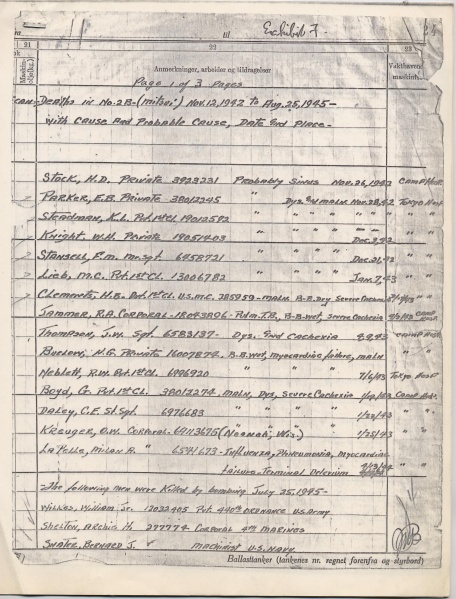 til Exhibit F. 24
21 22 23
Anmerkninger, arbeider og tildragelser Vakthavende maskinist
Page 1 of 3 pages
Deaths in No. 2 B-(Mitsui) Nov. 12, 1942 to Aug. 25, 1945-
with Cause and Probable Cause, Date and Place-
Stock, H.D. Private 3923231 Probably Sinus Nov. 26, 1942 Camp Hosp.
Parker, E.B. Private 38012245 " Dys. and maln. Nov. 28, 42 Tokyo Hosp
Steadman, K.L. Pvt. 1st Cl. 19012582 " " " " " " "
Knight, W.H. Private 19051403 " " " " Dec. 2, 42
Stansell, E.M. Mr. Sgt 6458721 " " " " Dec. 21, 42
Lieb, M.C. Pvt. 1st Cl. 13006782 " " " " Jan. 7, 43
Clements, H.B. Pvt. 1st Cl. U.S.M.C. 285959 - Maln. B-B. Dry Severe Cachexia " "
Sammer, R.A. Corporal - 18043806 - Pulm. T.B., B-B. wet, Severe Cachexia Camp Hosp.
Thompson, J.W. Sgt. 6583137 - Dys. and Cachexia Camp Hosp.
N.G. Private 16007874 B-B. wet, myocardiac failure, maln " "
Neblett, R.W. 6996920 7/6/43 Tokyo Hosp
Boyd, G. Pvt. 1st Cl. 38012274 maln, Dys, Severe Cachexia Camp Hosp.
Daley, C.E. St. Sgt. 6976683 " " " " 1/22/43 " "
Kreuger, O.W. Corporal 69113675 (Neenah, Wis.) " 1/25/43 " "
La Pelle, Milan R. " 6571673 - Influenza, Pneumonia, myocardiac
failure, Terminal Delerium " "
The following men were Killed by bombing July 25, 1945-
Wilkes, William, Jr. 12032405 Pvt. 440th Ordnance U.S. Army
Shelton, Archie H. 277774 Corporal 4th Marines
Bernard J. ✓ Machinist U.S. Navy
Ballasttanker (tankenes nr. regnet forenfra og styrbord)